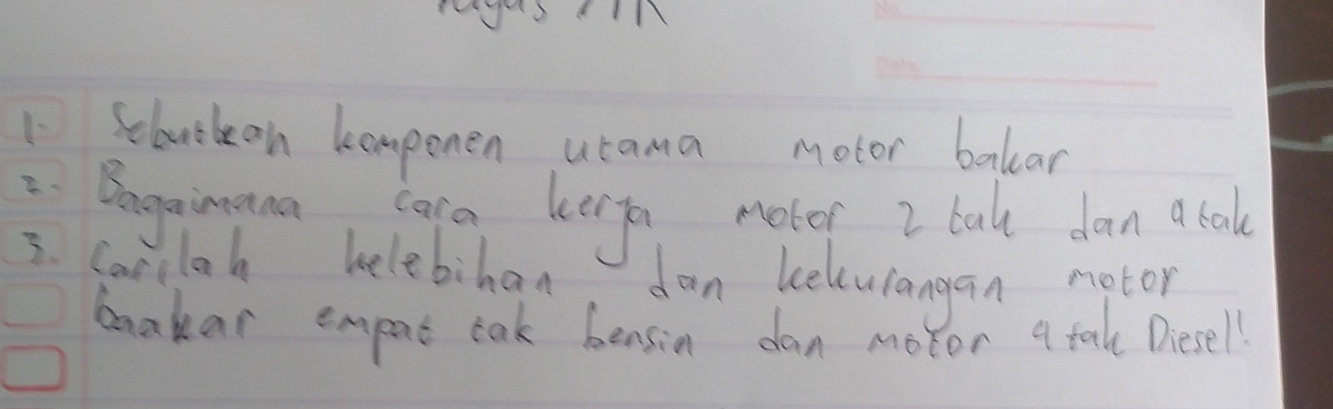 Tugas
No.
Date.
1. Sebutkan komponen utama motor bakar
2. Bagaimana cara kerja motor 2 tak dan 4 tak
3. Carilah kelebihan dan kekurangan motor
baakar empat tak bensin dan motor 4 tak Diesel!